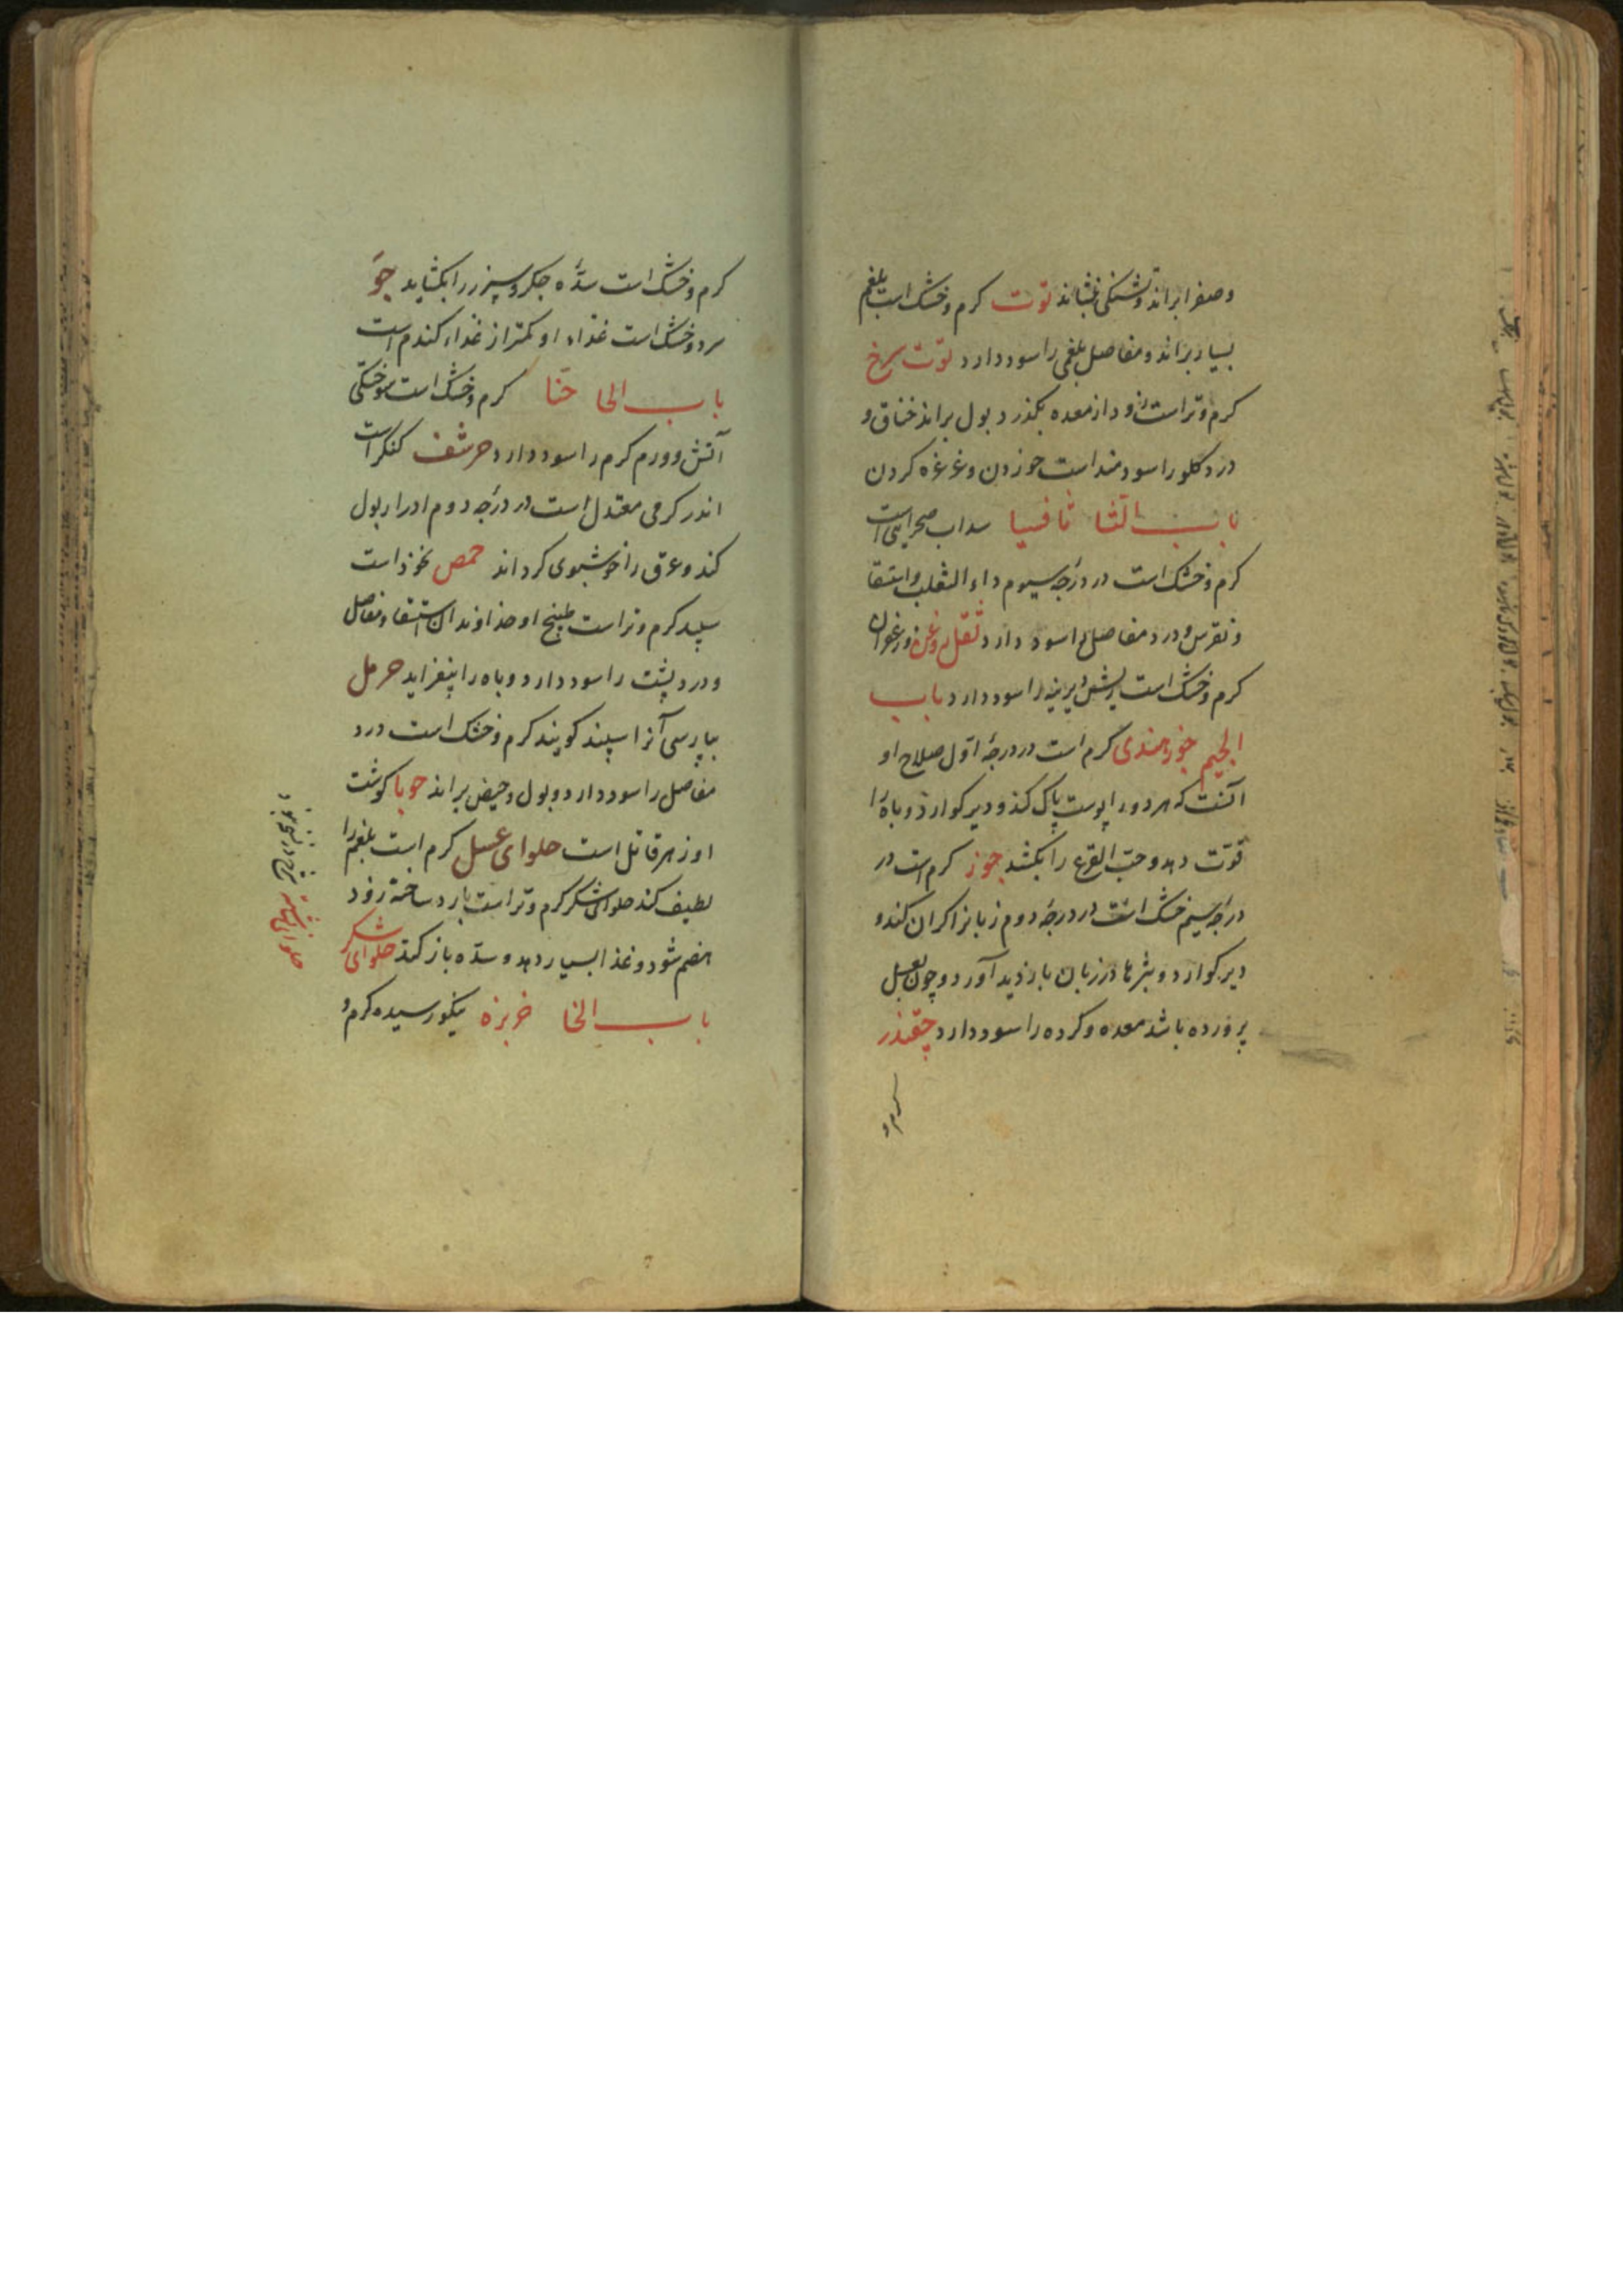 و صفرا براند و تشنکی بنشاند توت کرم و خشک است بلغم
بسیار براند و مفاصل بلغمی را سود دارد توت سرخ
کرم و تر است زود از معده بکذرد بول براند خناق و
درد کلو را سودمند است خوردن و غرغره کردن
باب الثا ثافسیا سداب صحرایی است
کرم و خشک است در درجه سیوم داء الثعلب و استسقا
و نقرس و درد مفاصل را سود دارد ثفل روغن زعفران
کرم و خشک است ریش دیرینه را سود دارد باب
الجیم جوز هندی کرم است در درجه اول صلاح او
آنست که هر دو را پوست پاک کند و دیر کوارد و باه را
قوّت دهد و حبّ القرع را بکشد جوز کرم است در
درجه سیم خشک است در درجه دوم زبانرا کران کند و
دیر کوارد و بثرها در زبان بازدید آورد و چون بعسل
پرورده باشد معده و کرده را سود دارد چقندر
کرم و خشک است سدّه جکر و سپرز را بکشاید جو
سرد و خشک است غذاء او کمتر از غذاء کندم است
باب الحا حنّا کرم و خشک است سوختکی
آتش و ورم کرم را سود دارد حرشف کنکر است
اندر کرمی معتدل است در درجه دوم ادرار بول
کند و عرق را خوشبوی کرداند حمص نخود است
سپید کرم و تر است طبیخ او خداوندان استسقا و مفاصل
و درد پشت را سود دارد و باه را بیفزاید حرمل
بپارسی آنرا سپند کویند کرم و خشک است درد
مفاصل را سود دارد و بول و حیض براند حربا کوشت
او زهر قاتل است حلوای عسل کرم است بلغم را
لطیف کند حلوای شکر کرم و تر است بارد ساخته زود
هضم شود و غذا بسیار دهد و سدّه باز کند حلوای شکر
باب الخا خربزه نیکو رسیده کرم و